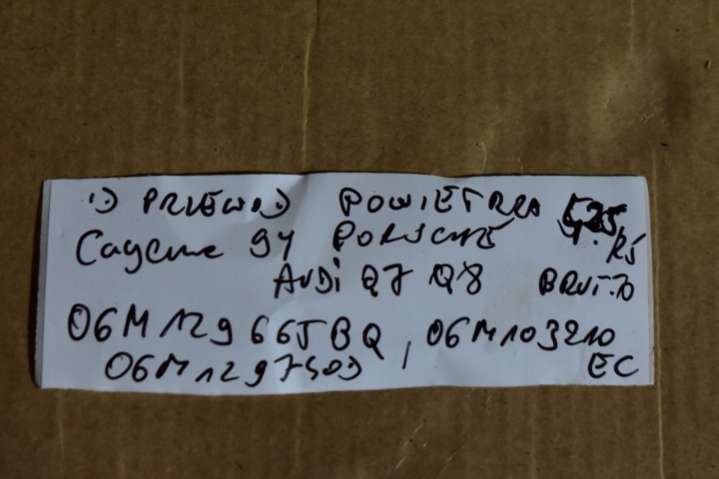 1) PRZEWÓD POWIETRZA
Cayenne 9Y PORSCHE
AUDI Q7 Q8 BRUT.70
06M129665BQ, 06M103210
06M1297503 EC